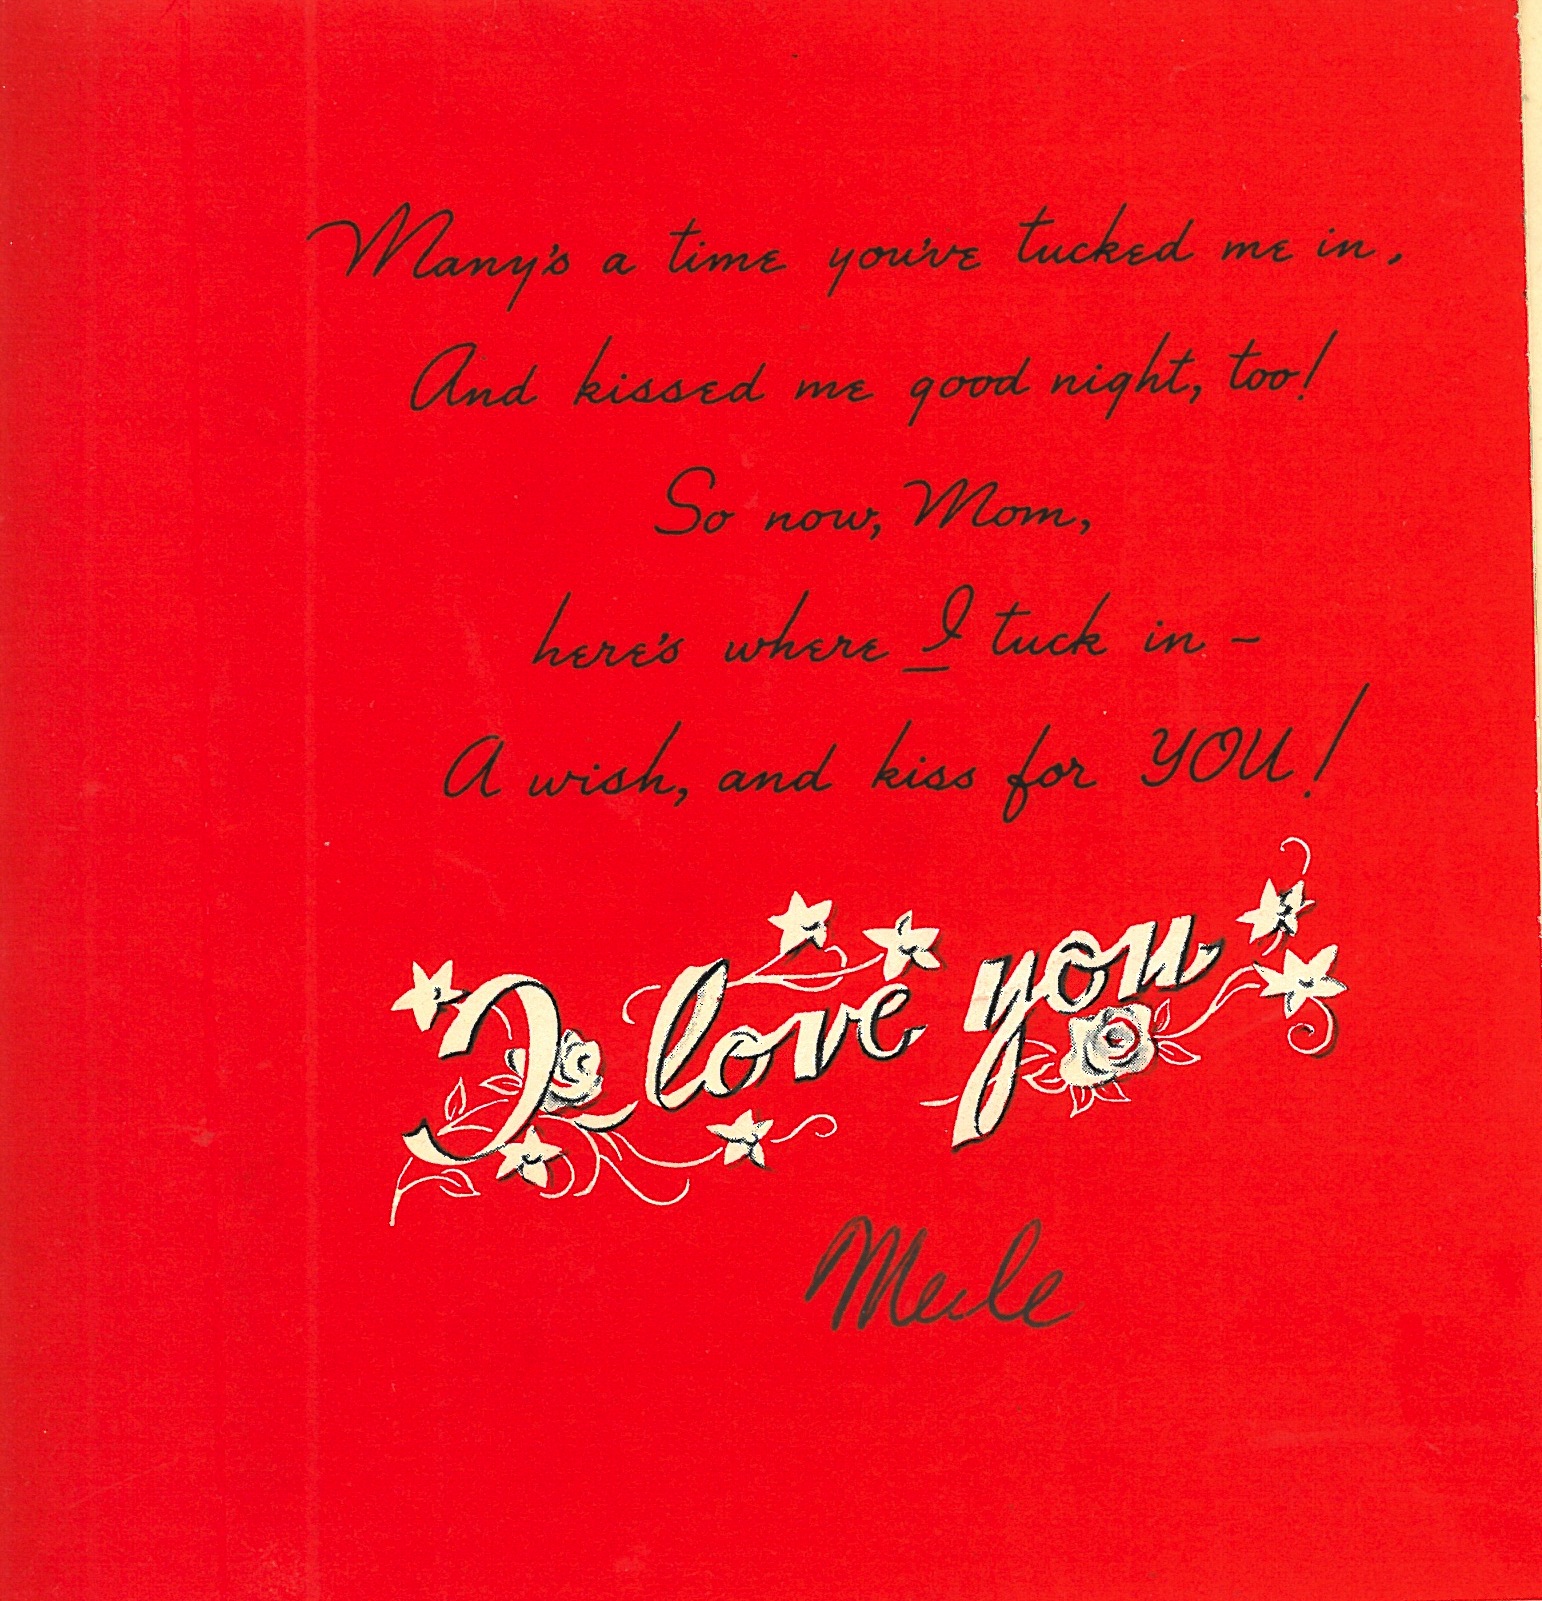 Many's a time you've tucked me in,
And kissed me good night, too!
So now, Mom,
here's where I tuck in –
A wish, and kiss for YOU!
I love you
Merle